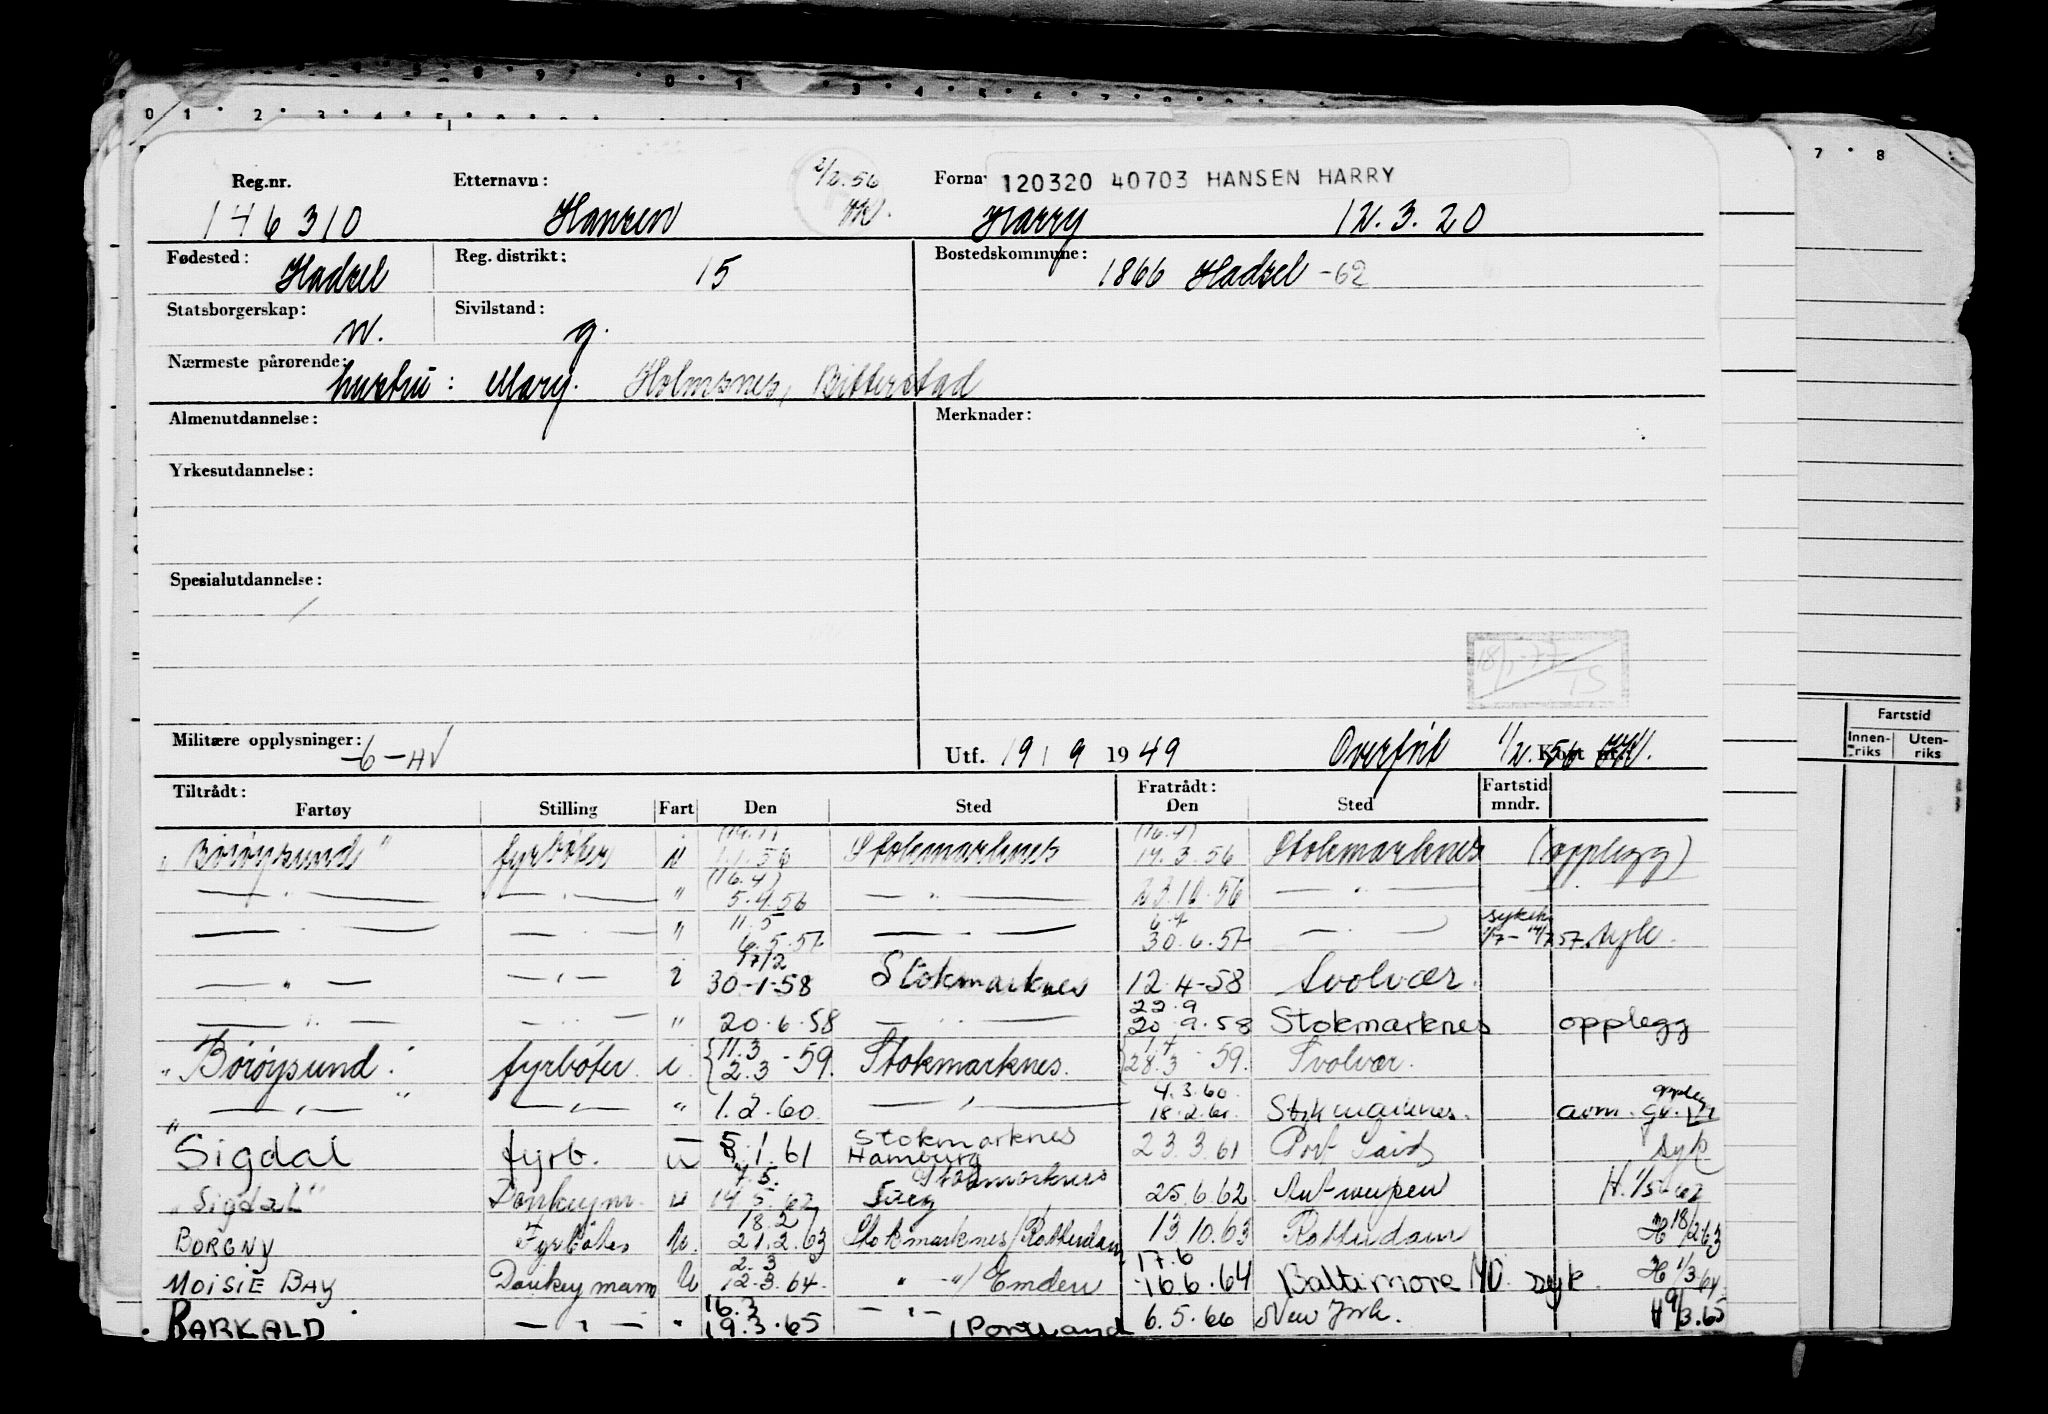 0 1 2 3 4 5
7 8
Reg.nr. Etternavn: 2/2.56 Forna 120320 40703 HANSEN HARRY
146310 Hansen Harry 12.3.20
Fødested: Hadsel Reg. distrikt: 15 Bostedskommune: 1866 Hadsel -62
Statsborgerskap: n. Sivilstand: g.
Nærmeste pårørende: hustru: Mary. Holmsnes, Bitterstad
Almenutdannelse: Merknader:
Yrkesutdannelse:
Spesialutdannelse:
18/1-77 TS
Militære opplysninger: -6-HV Utf. 19/9 1949 Overført 1/2.56 Kort
Fartstid
Innenriks Utenriks
Tiltrådt: Fratrådt: Fartstid
Fartøy Stilling Fart Den Sted Den Sted mndr.
"Børøysund" fyrbøter (19.1) 1.1.56 Stokmarknes (16.4) 19.3.56 Stokmarknes (opplegg)
— " — — " — " (16.4) 5.4.56 — " — 23.10.56 — " —
— " — — " — " 11.5 6.5.57 — " — 6.7 30.6.57 — " — 57 syk.
— " — — " — i 17/2 30-1-58 Stokmarknes 12.4-58 Svolvær.
— " — — " — " 20.6.58 — " — 22.9 20.9.58 Stokmarknes opplegg
"Børøysund" fyrbøter i. 11.3 2.3 -59. Stokmarknes. 1.4 28.3 -59. Svolvær.
— " — — " — " 1.2.60. — " — 4.3.60. 18.2.60. Stokmarknes. avm. opplegg
Sigdal fyrb. u 5.1.61 Stokmarknes Hamburg 23.3.61 Port Said syk
"Sigdal" Donkeym. u 7.5. 14.5.62 Stokmarknes 25.6.62 Antwerpen H. 1/5-62
BORGNY Fyrbøter U. 18.2 21.2.63 Stokmarknes/Rotterdam 13.10.63 Rotterdam H 18/2 63
MOISIE BAY Donkeymann U 2.3 12.3.64. " — "/ Emden 17.6 16.6.64 Baltimore MD. syk. H 1/3 64.
BARKALD — " — " 16.3 19.3.65 — " — / Portland 6.5.66 New York. H 9/3.65